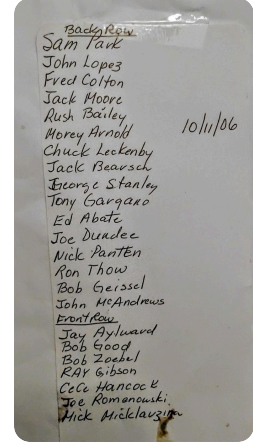 Back Row
Sam Park
John Lopez
Fred Colton
Jack Moore
Rush Bailey
Morey Arnold
10/11/06
Chuck Leckenby
Jack Bearsch
George Stanley
Tony Gargano
Ed Abate
Joe Dundee
Nick Panten
Ron Thow
Bob Geissel
John McAndrews
Front Row
Jay Aylward
Bob Good
Bob Zoebel
RAY Gibson
CeCe Hancock
Joe Romanowski
Mick